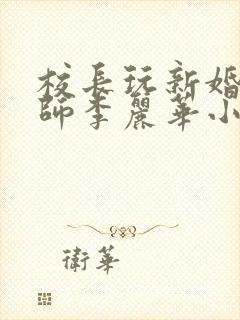 校長玩新婚
師李麗華小
衛華